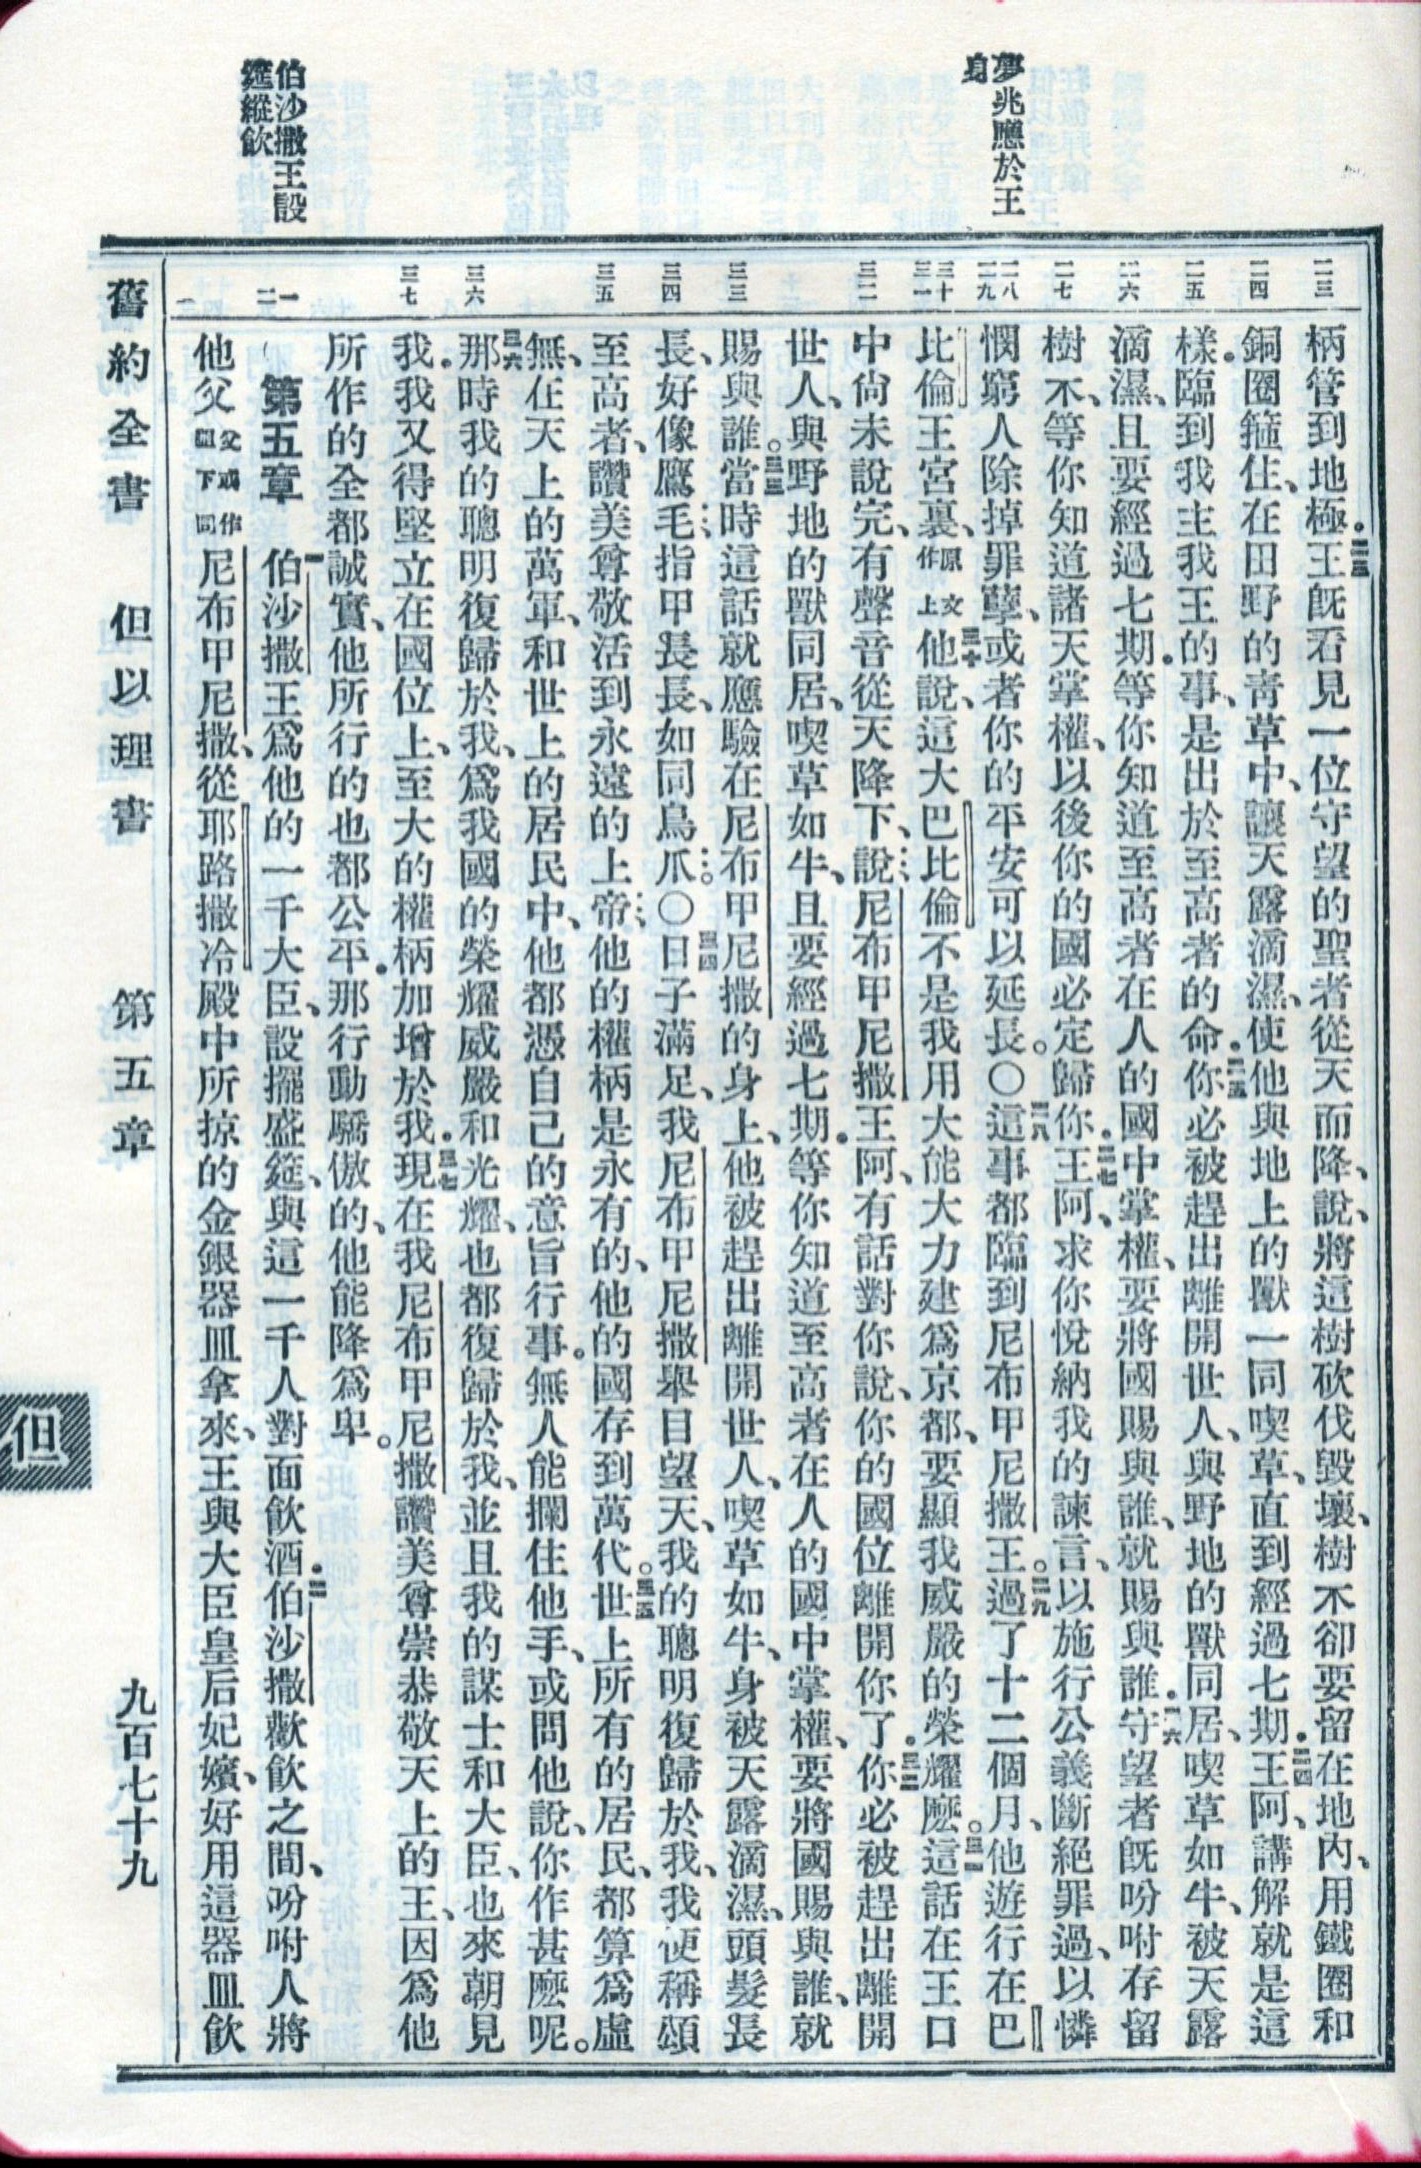 夢兆應於王
身
伯沙撒王設
筵縱飲
二三
二四
二五
二六
二七
二八
二九
三十
三一
三二
三三
三四
三五
三六
三七
一
二
柄管到地極.二三王旣看見一位守望的聖者從天而降、說、將這樹砍伐毀壞、樹不卻要留在地內、用鐵圈和
銅圈箍住、在田野的靑草中、讓天露滴濕、使他與地上的獸一同喫草、直到經過七期.二四王阿、講解就是這
樣.臨到我主我王的事、是出於至高者的命.二五你必被趕出離開世人、與野地的獸同居、喫草如牛、被天露
滴濕、且要經過七期.等你知道至高者在人的國中掌權、要將國賜與誰、就賜與誰.二六守望者旣吩咐存留
樹不、等你知道諸天掌權、以後你的國必定歸你.二七王阿、求你悅納我的諫言、以施行公義斷絕罪過、以憐
憫窮人除掉罪孽、或者你的平安可以延長。〇二八這事都臨到尼布甲尼撒王。二九過了十二個月、他遊行在巴
比倫王宮裏、原文作上三十他說、這大巴比倫不是我用大能大力建爲京都、要顯我威嚴的榮耀麽。三一這話在王口
中尙未說完、有聲音從天降下、說、尼布甲尼撒王阿、有話對你說、你的國位離開你了.三二你必被趕出離開
世人、與野地的獸同居、喫草如牛、且要經過七期.等你知道至高者在人的國中掌權、要將國賜與誰、就
賜與誰。三三當時這話就應驗在尼布甲尼撒的身上、他被趕出離開世人、喫草如牛、身被天露滴濕、頭髮長
長、好像鷹毛、指甲長長、如同鳥爪。〇三四日子滿足、我尼布甲尼撒舉目望天、我的聰明復歸於我、我便稱頌
至高者、讚美尊敬活到永遠的上帝、他的權柄是永有的、他的國存到萬代。三五世上所有的居民、都算爲虛
無、在天上的萬軍、和世上的居民中、他都憑自己的意旨行事。無人能攔住他手、或問他說、你作甚麽呢。
三六那時我的聰明復歸於我、爲我國的榮耀威嚴和光耀、也都復歸於我、並且我的謀士和大臣、也來朝見
我.我又得堅立在國位上、至大的權柄加增於我.三七現在我尼布甲尼撒讚美尊崇恭敬天上的王、因爲他
所作的全都誠實、他所行的也都公平.那行動驕傲的、他能降爲卑。
第五章 一伯沙撒王爲他的一千大臣、設擺盛筵、與這一千人對面飲酒.二伯沙撒歡飲之間、吩咐人將
他父父或作祖下同尼布甲尼撒、從耶路撒冷殿中所掠的金銀器皿拿來、王與大臣皇后妃嬪、好用這器皿飲
舊約全書 但以理書 第五章 九百七十九
但